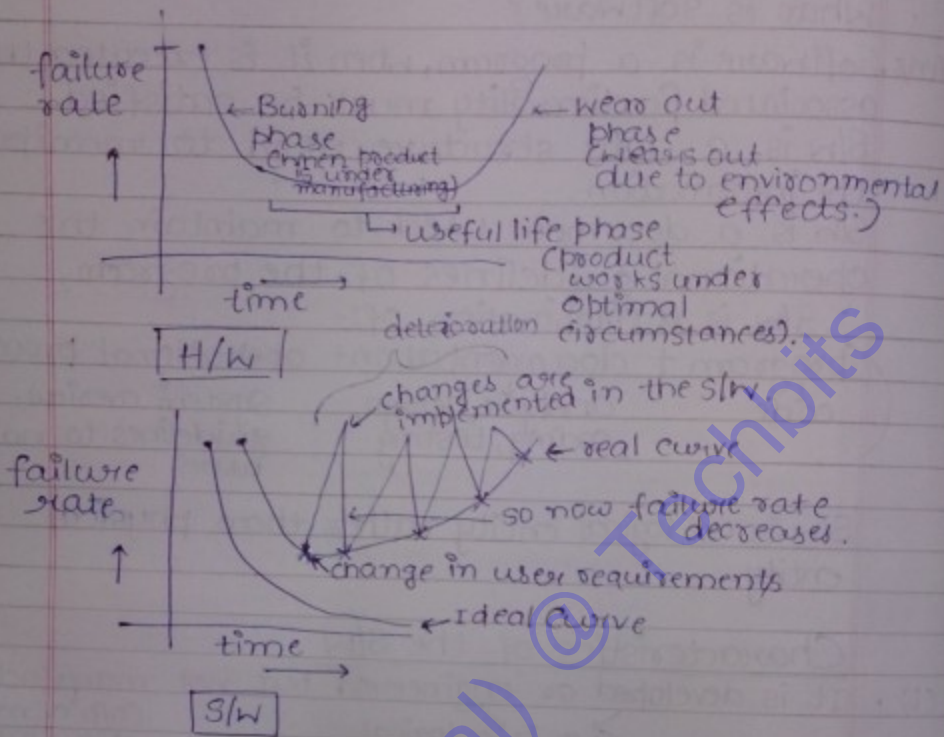 failure
rate
Burning
phase
(when product
is under
manufacturing)
wear out
phase
(wears out
due to environmental
effects.)
useful life phase
(product
works under
optimal
circumstances).
time
H/W
deterioration
changes are
implemented in the S/W
failure
rate
real curve
so now failure rate
decreases.
change in user requirements
Ideal Curve
time
S/W
@ Techbits